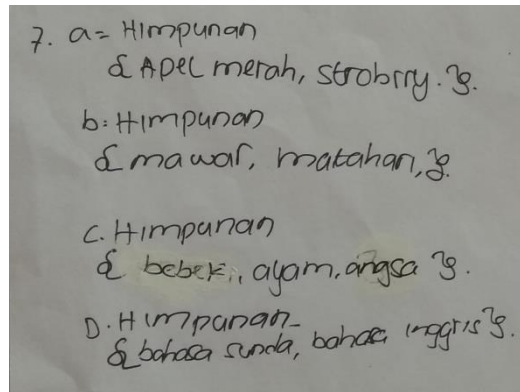 7. a= Himpunan
{ Apel merah, strobrry. }.
b: Himpunan
{ mawar, matahari, }.
C. Himpunan
{ bebek,, ayam, angsa }.
D. Himpunan
{ bahasa sunda, bahasa inggris }.